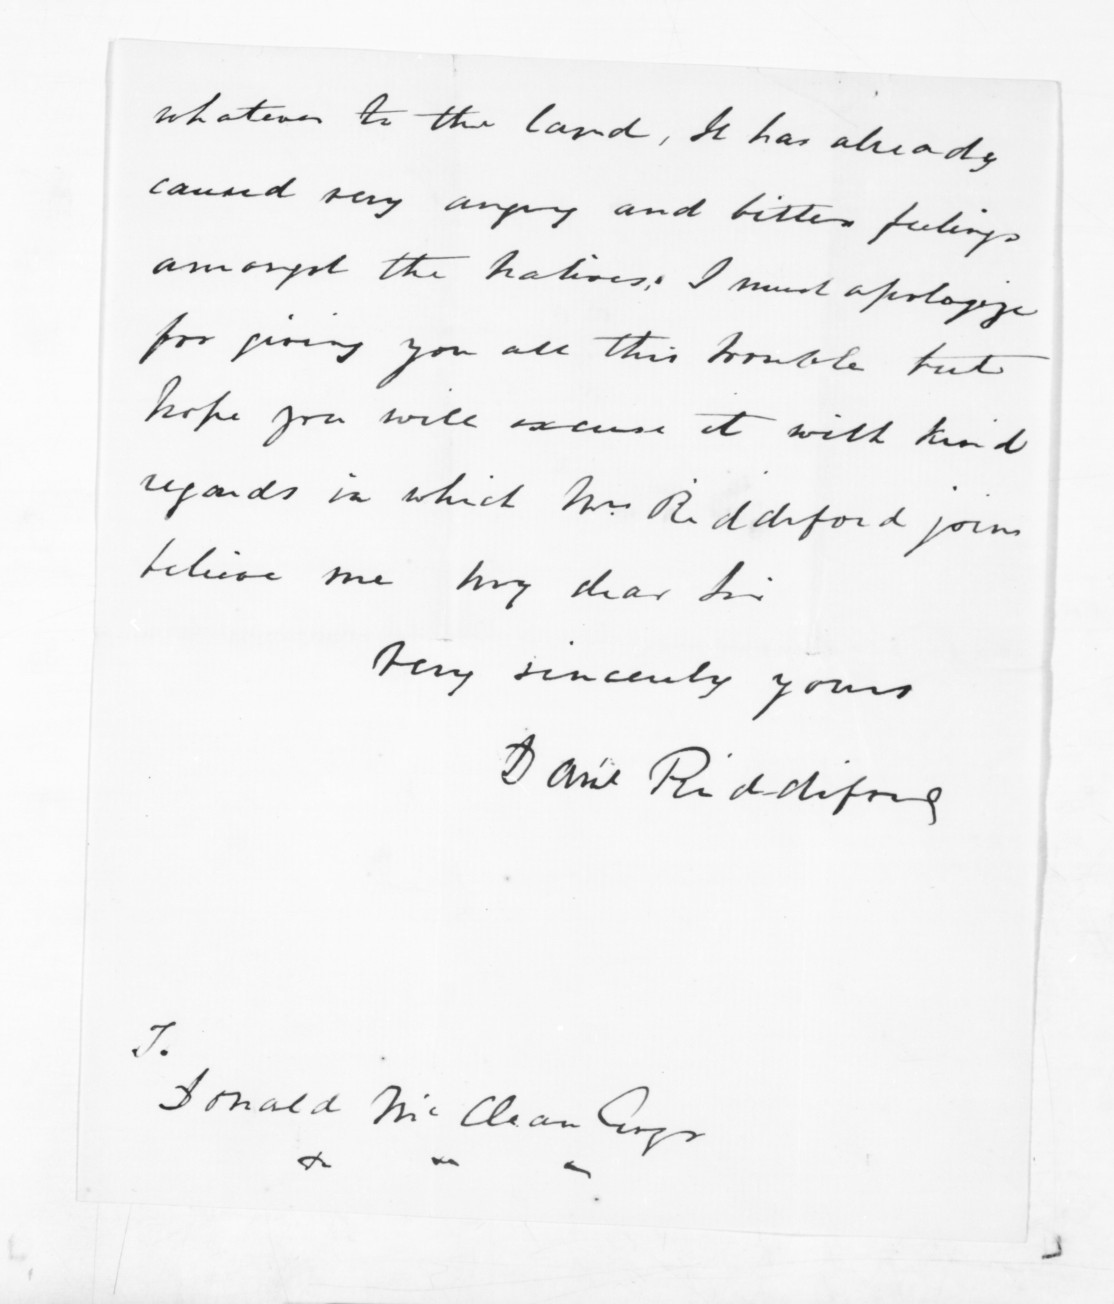 whatever to the land, It has already
caused very angry and bitter feelings
amongst the Natives. I must apologize
for giving you all this trouble but
hope you will excuse it with kind
regards in which Mrs Riddiford joins
believe me My dear Sir
Very sincerely yours
Danl Riddiford
To
Donald McClean Esqr